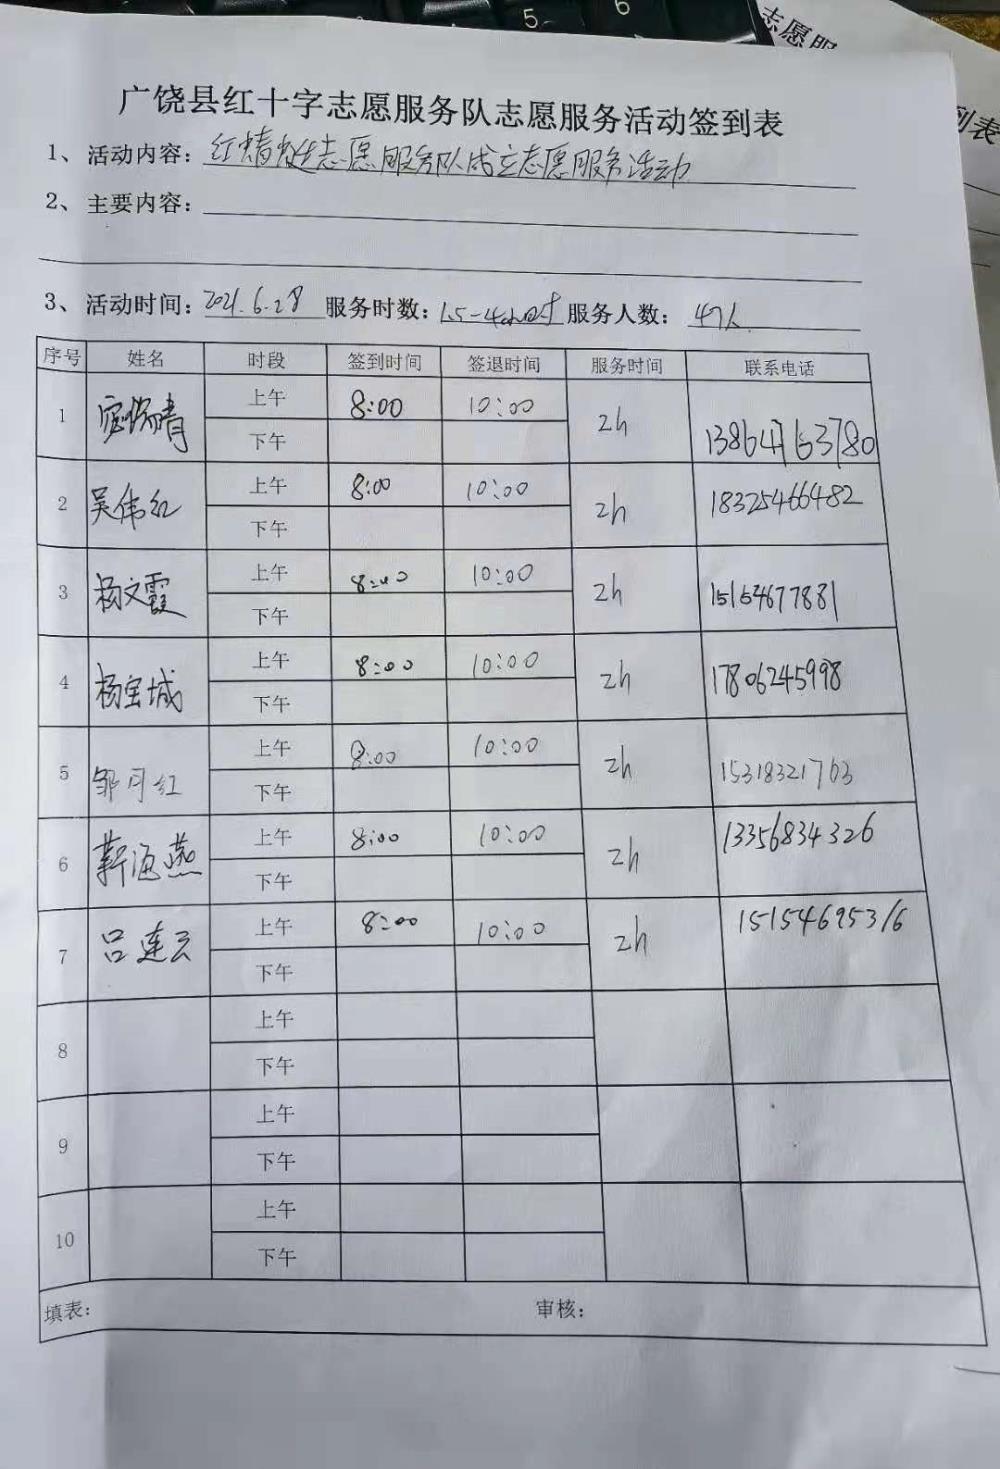 5
6
志愿服
到表
广饶县红十字志愿服务队志愿服务活动签到表
1、活动内容：红蜻蜓志愿服务队成立志愿服务活动
2、主要内容：
3、活动时间：2021.6.28 服务时数：1.5-4小时 服务人数：47人
序号 姓名 时段 签到时间 签退时间 服务时间 联系电话
1 上午 8:00 10:00 2h 13864763780
下午
2 吴伟红 上午 8:00 10:00 2h 18325466482
下午
3 杨文霞 上午 8:00 10:00 2h 15154677831
下午
4 杨宝城 上午 8:00 10:00 2h 17806245998
下午
5 邹月红 上午 8:00 10:00 2h 15318321763
下午
6 靳海燕 上午 8:00 10:00 2h 13356834326
下午
7 吕连云 上午 8:00 10:00 2h 15154695316
下午
8 上午
下午
9 上午
下午
10 上午
下午
填表： 审核：